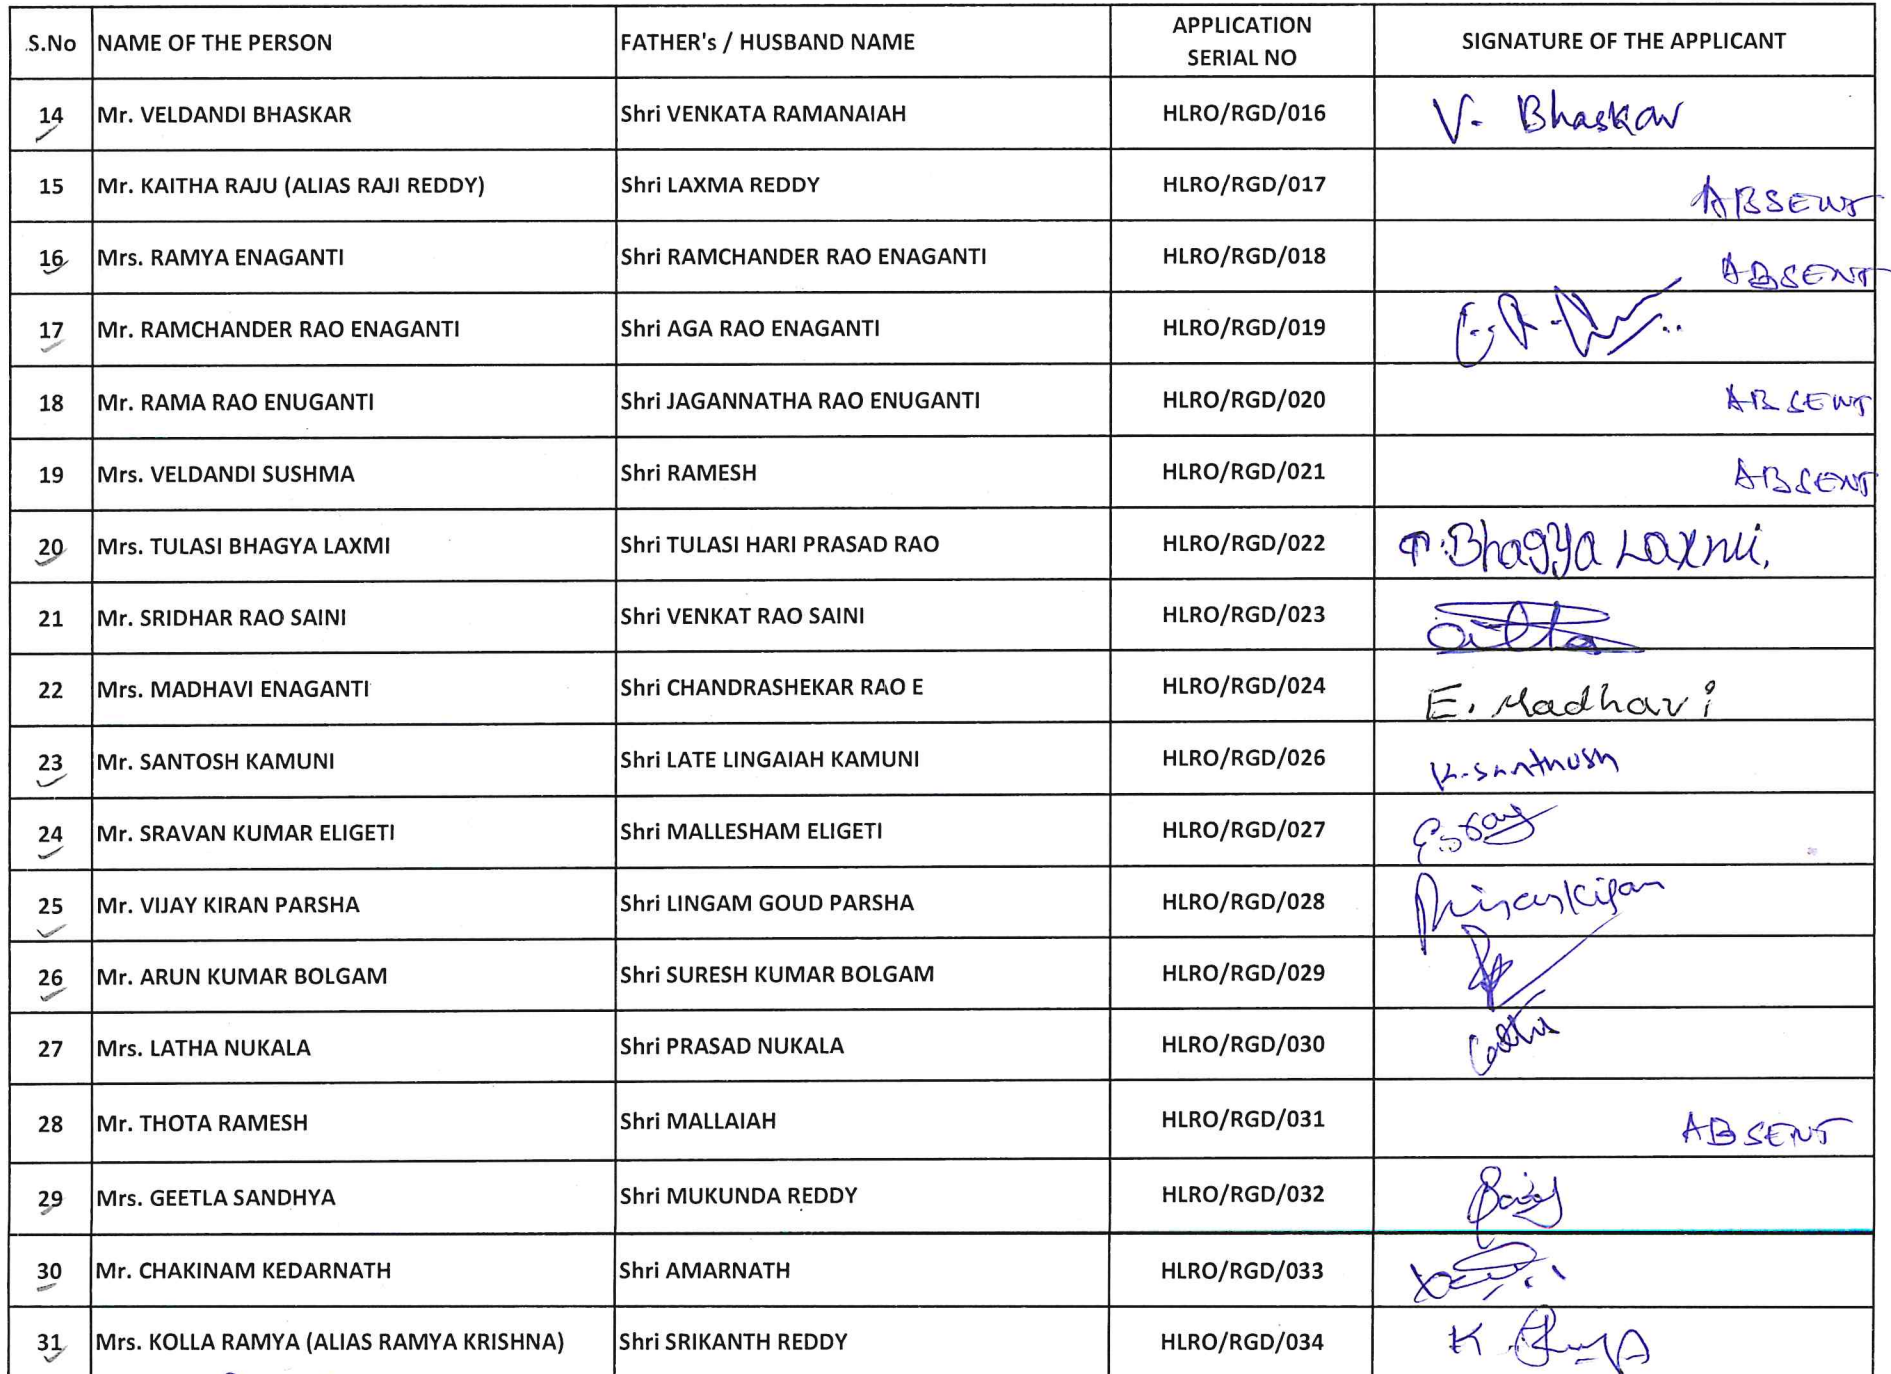 S.No NAME OF THE PERSON FATHER's / HUSBAND NAME APPLICATION SERIAL NO SIGNATURE OF THE APPLICANT
14 Mr. VELDANDI BHASKAR Shri VENKATA RAMANAIAH HLRO/RGD/016 V. Bhaskar
15 Mr. KAITHA RAJU (ALIAS RAJI REDDY) Shri LAXMA REDDY HLRO/RGD/017 ABSENT
16 Mrs. RAMYA ENAGANTI Shri RAMCHANDER RAO ENAGANTI HLRO/RGD/018 ABSENT
17 Mr. RAMCHANDER RAO ENAGANTI Shri AGA RAO ENAGANTI HLRO/RGD/019
18 Mr. RAMA RAO ENUGANTI Shri JAGANNATHA RAO ENUGANTI HLRO/RGD/020 ABSENT
19 Mrs. VELDANDI SUSHMA Shri RAMESH HLRO/RGD/021 ABSENT
20 Mrs. TULASI BHAGYA LAXMI Shri TULASI HARI PRASAD RAO HLRO/RGD/022 T. Bhagya Laxmi.
21 Mr. SRIDHAR RAO SAINI Shri VENKAT RAO SAINI HLRO/RGD/023
22 Mrs. MADHAVI ENAGANTI Shri CHANDRASHEKAR RAO E HLRO/RGD/024 E. Madhavi
23 Mr. SANTOSH KAMUNI Shri LATE LINGAIAH KAMUNI HLRO/RGD/026 K. Santhosh
24 Mr. SRAVAN KUMAR ELIGETI Shri MALLESHAM ELIGETI HLRO/RGD/027
25 Mr. VIJAY KIRAN PARSHA Shri LINGAM GOUD PARSHA HLRO/RGD/028
26 Mr. ARUN KUMAR BOLGAM Shri SURESH KUMAR BOLGAM HLRO/RGD/029
27 Mrs. LATHA NUKALA Shri PRASAD NUKALA HLRO/RGD/030 Latha
28 Mr. THOTA RAMESH Shri MALLAIAH HLRO/RGD/031 ABSENT
29 Mrs. GEETLA SANDHYA Shri MUKUNDA REDDY HLRO/RGD/032
30 Mr. CHAKINAM KEDARNATH Shri AMARNATH HLRO/RGD/033
31 Mrs. KOLLA RAMYA (ALIAS RAMYA KRISHNA) Shri SRIKANTH REDDY HLRO/RGD/034